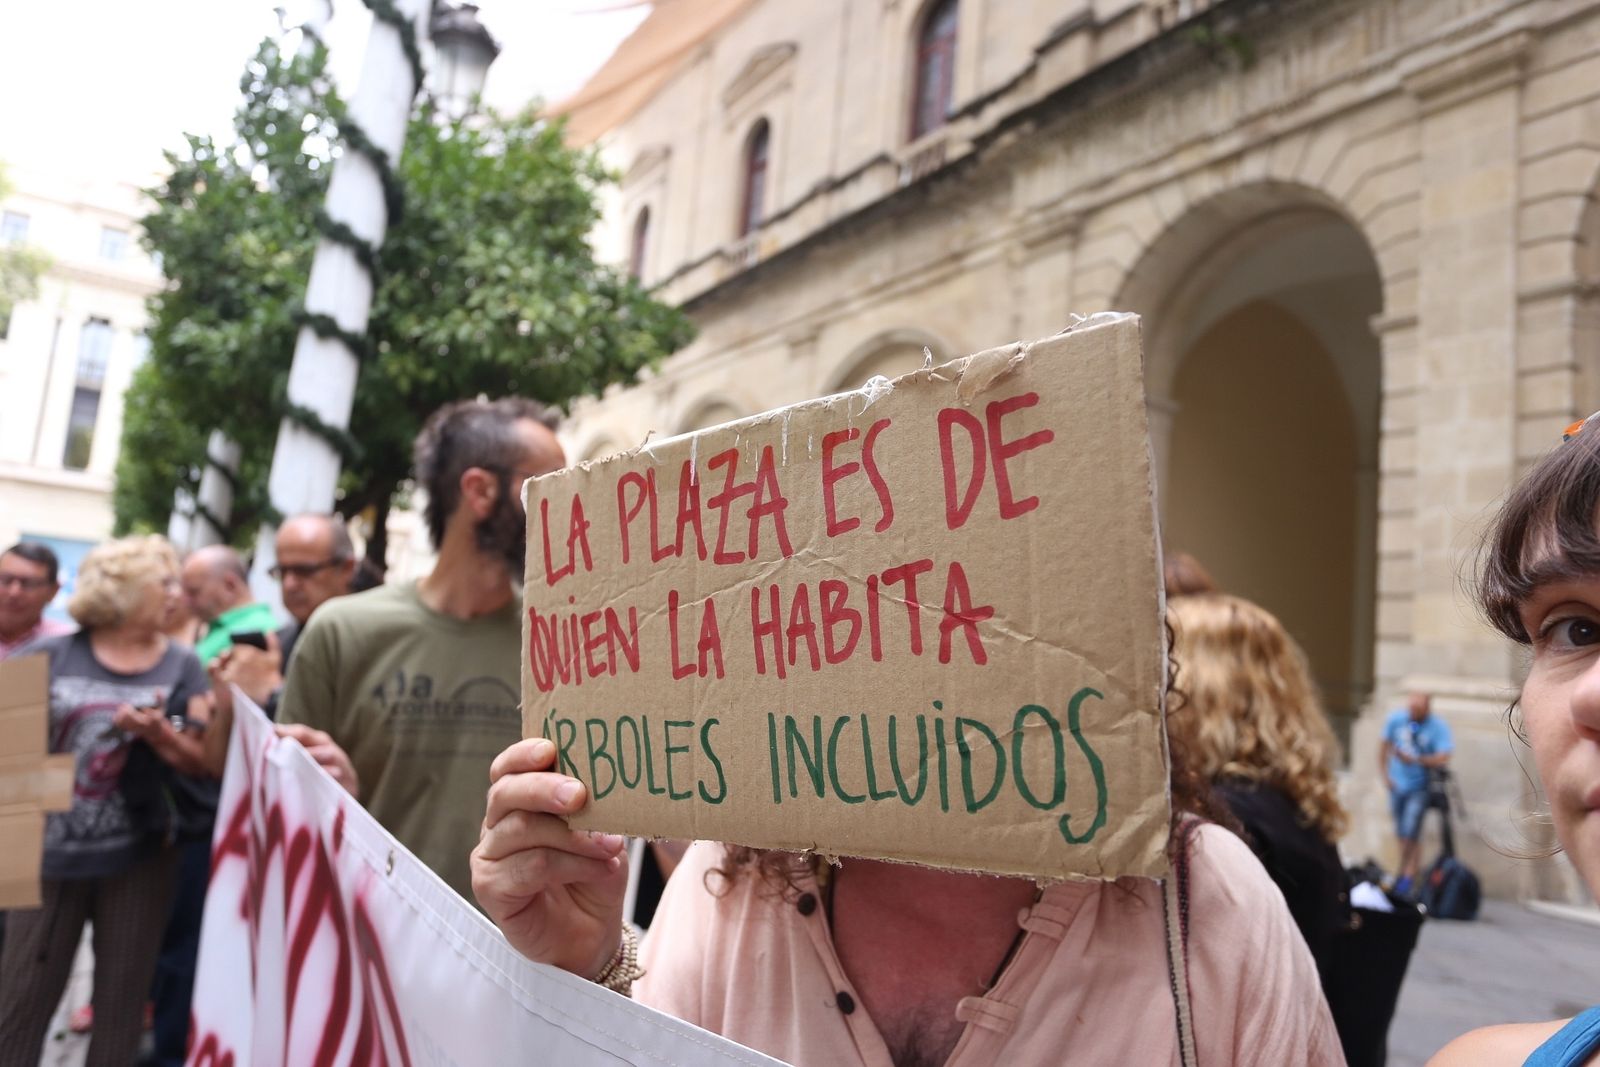 LA PLAZA ES DE
QUIEN LA HABITA
ÁRBOLES INCLUiDOS
la
contramano